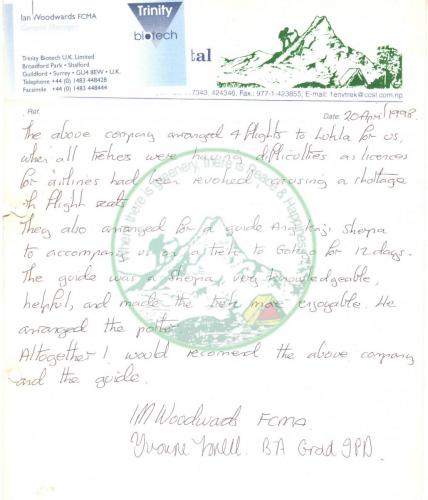 Ian Woodwards FCMA
General Manager
Trinity
biotech
Trinity Biotech U.K. Limited
Broadford Park • Shalford
Guildford • Surrey • GU4 8EW • U.K.
Telephone +44 (0) 1483 448428
Facsimile +44 (0) 1483 448444
tal
7343, 424346, Fax: 977-1-423855, E-mail: 1envtrek@ccsl.com.np
Ref.
Date: 20 April 1998
The above company arranged 4 flights to Lukla for us,
when all trekers were having difficulties as licences
for airlines had been revoked causing a shortage
of flight seats.
They also arranged for a guide Ang Sherpa
to accompany us on a trek to Gokyo for 12 days.
The guide was a Sherpa, very knowledgeable,
helpful, and made the trek more enjoyable. He
arranged the porter.
Altogether I would recomend the above company
and the guide.
IM Woodwards FCMA
Yvonne BA Grad IPD.
Where there is Greenery, there is Peace & Happiness